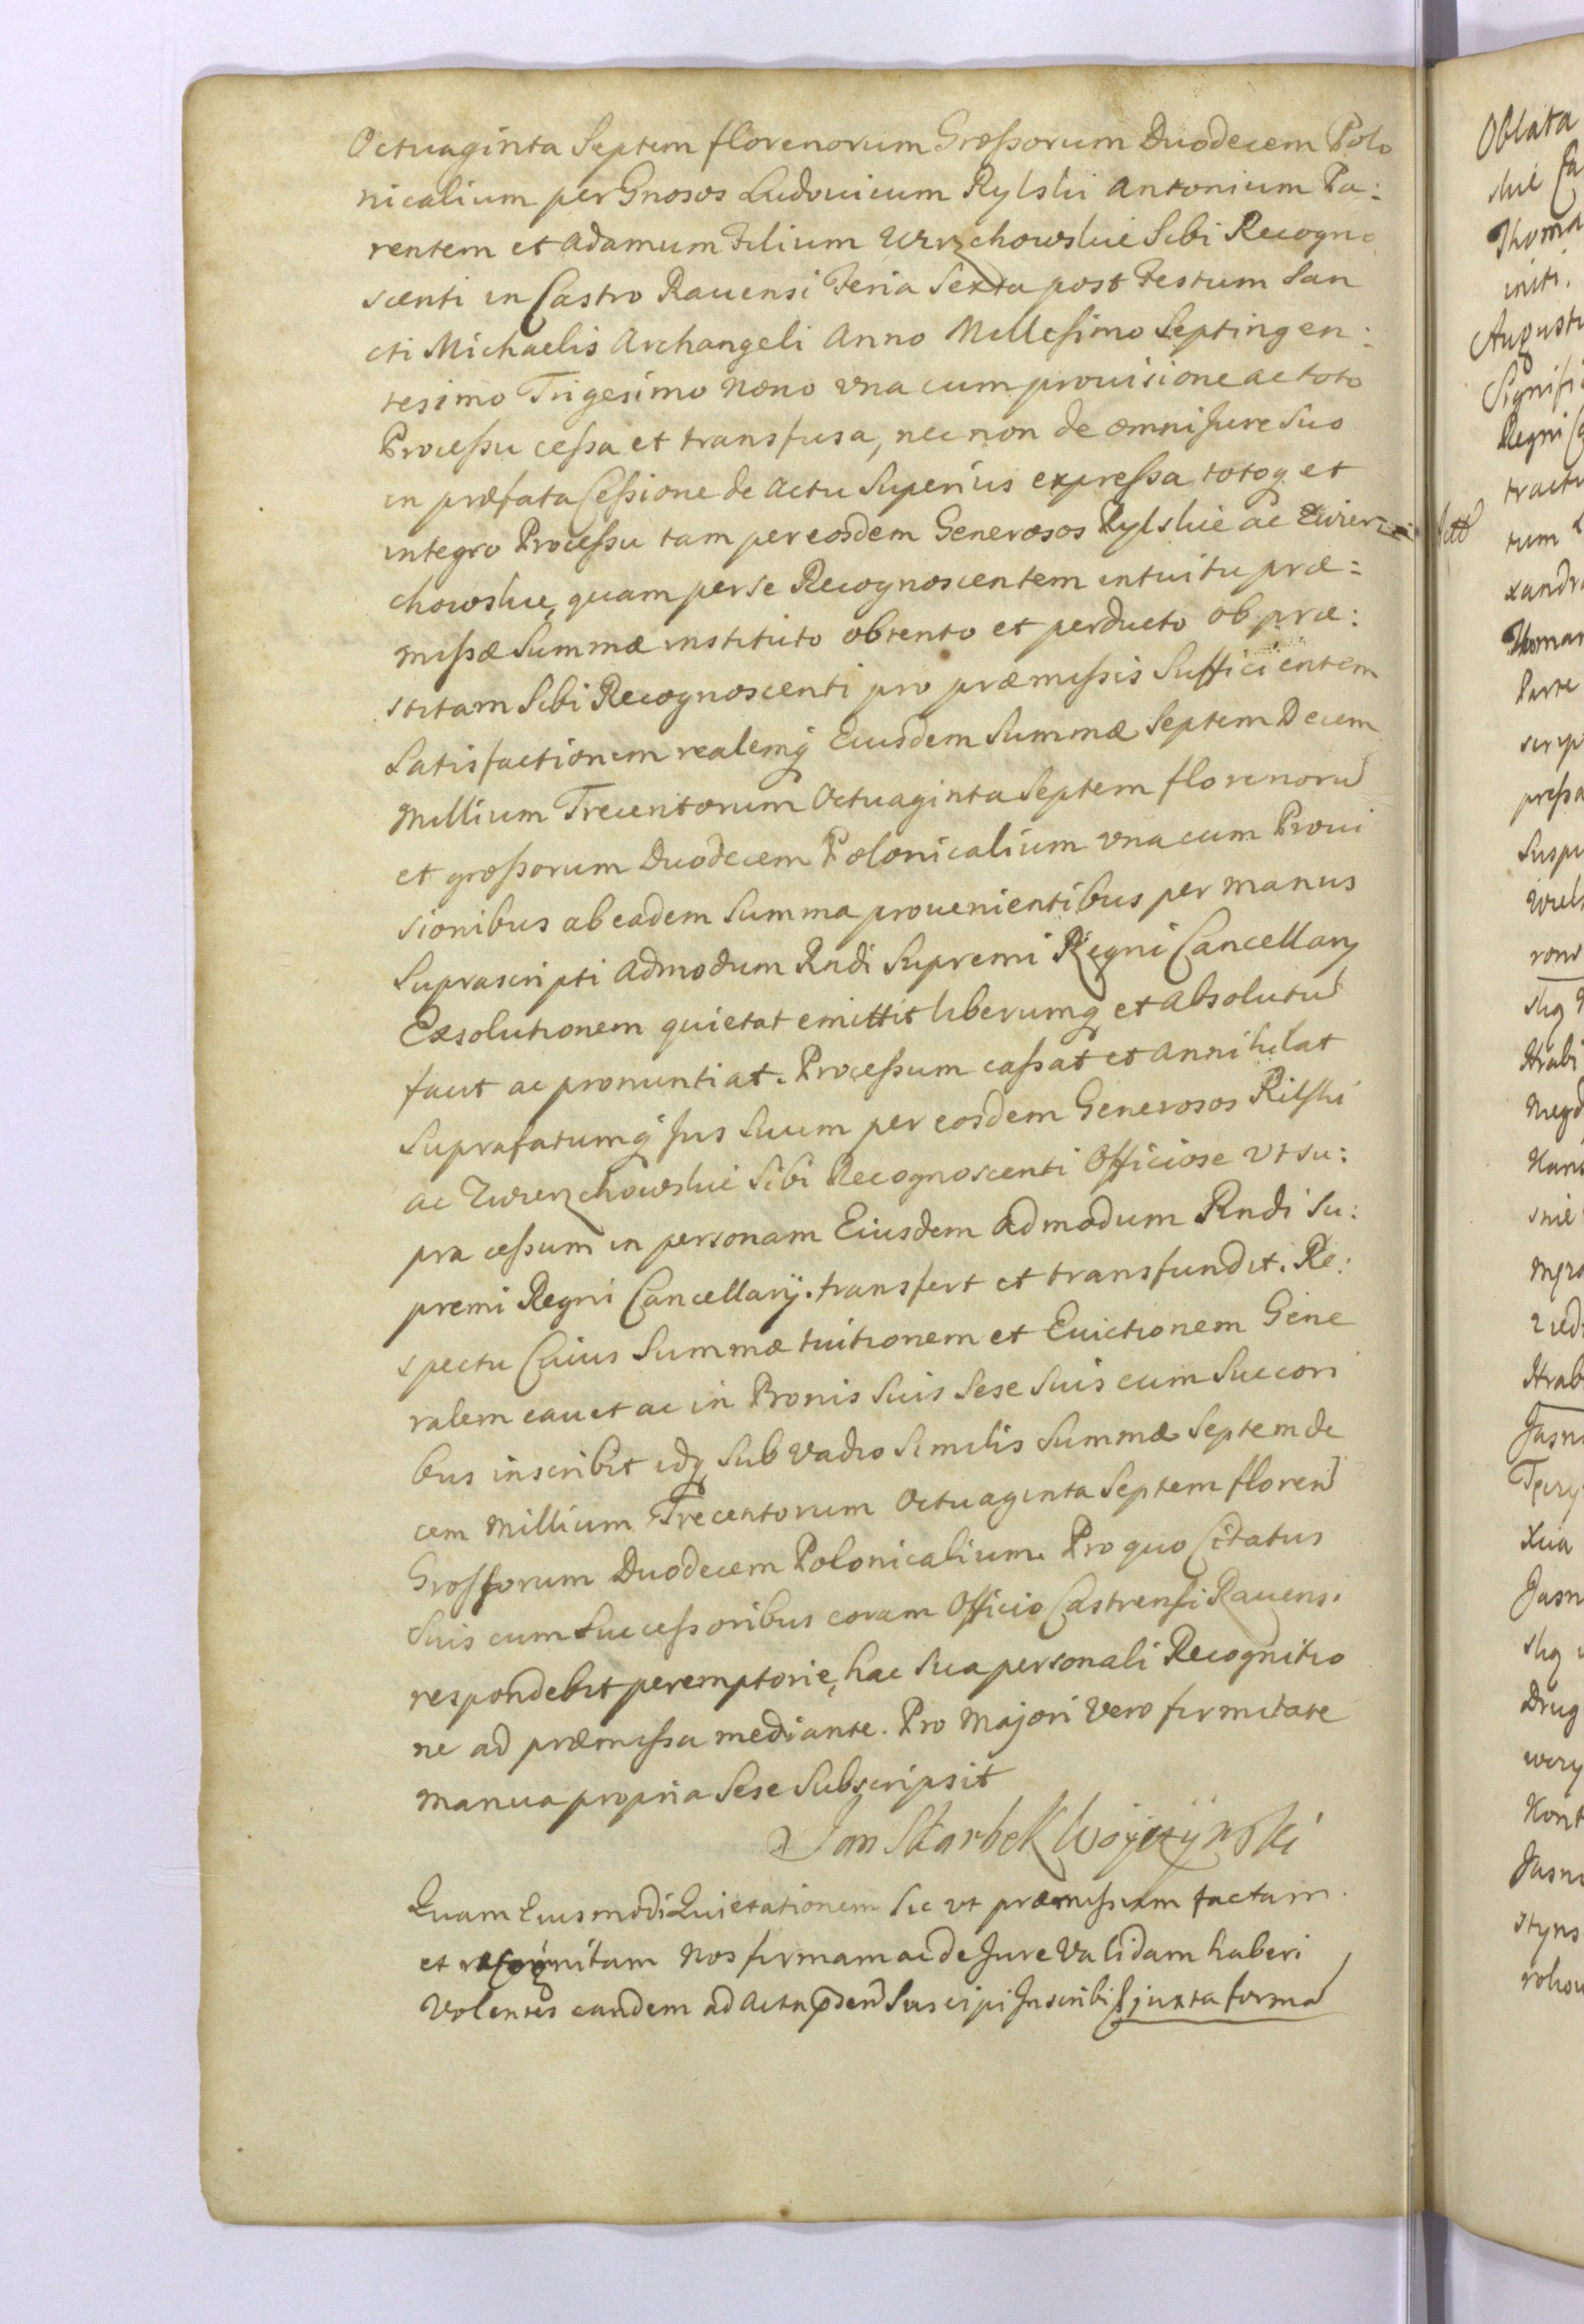 Octuaginta Septem florenorum Grossorum Duodecem Polo
nicalium per Gnosos Ludovicum Rylski Antonium Pa:
rentem et Adamum Filium Wirzchowskie Sibi Recogno
scenti in Castro Rauensi Feria Sexta post Festum San
cti Michaelis Archangeli Anno Millesimo Septingen:
tesimo Trigesimo Nono vna cum prouisione ac toto
Processu cessa et transfusa, nec non de omni Jure Suo
in præfata Cessione de Actu Superius expressa totoq et
integro Processu tam per eosdem Generosos Rylskie ac Zwierz
chowskie, quam per se Recognoscentem intuitu præ=
missæ Summæ instituto obtento et perducto ob præ:
stitam Sibi Recognoscenti pro præmissis Sufficientem
Satisfactionem realemq Eiusdem Summæ Septem Decem
Millium Trecentorum Octuaginta Septem florenorū
et grossorum Duodecem Polonicalium vna cum Proui
sionibus ab eadem Summa prouenientibus per manus
Suprascripti Admodum Rndi Supremi Regni Cancellarij
Exsolutionem quietat emittit liberumq et Absolutū
facit ac pronuntiat. Processum cassat et Annihilat
Suprafatumq Jus Suum per eosdem Generosos Rilski
ac Zwierzchowskie Sibi Recognoscenti Officiose vt su:
pra cessum in personam Eiusdem Admodum Rndi Su:
premi Regni Cancellarij. transfert et transfundit. Re:
spectu Cuius Summæ tuitionem et Euictionem Gene
ralem cauet ac in Bonis Suis Sese Suis cum Succori
bus inscribit idq Sub Vadio Similis Summæ Septem de
cem Millium Trecentorum Octuaginta Septem floren
Grossorum Duodecem Polonicalium. Pro quo Citatus
Suis cum Successoribus coram Officio Castrensi Rauensi
respondebit peremptorie, hac Sua personali Recognitio
ne ad præmissa mediante. Pro Majori Vero firmitate
manu propria Sese Subscripsit
Jan Skarbek Woyczynski
Quam Eiusmodi Quietationem Sic vt præmissum factam
et recognitam Nos firmam ac de Jure Validam haberi
Volentes eandem ad Acta Suscipi Inscribi juxta formā
Oblata
Thoma
initi.
August
Signifi
Regni Ca
tract
tum
xandr
Thomas
Parte
scrip
pressa
Susp
Hrabi
Hrab
Jasn
Jasn
Drug
Kont
Jasn